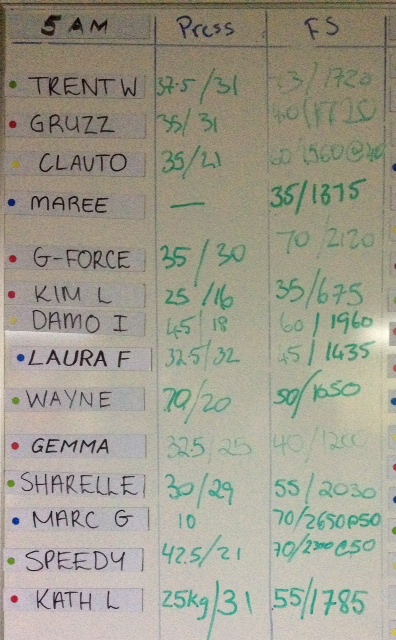 5 AM Press FS
TRENT W 37.5/31 /1720
GRUZZ 35/31
CLAUTO 35/21
MAREE — 35/1375
G-FORCE 35/30 70/2120
KIM L 25/16 35/675
DAMO I 45/18 60/1960
LAURA F 32.5/32 45/1435
WAYNE 70/20 50/1050
GEMMA 32.5/25 40/1200
SHARELLE 30/29 55/2030
MARC G 10 70/2650@50
SPEEDY 42.5/21 70/2300@50
KATH L 25kg/31 55/1785